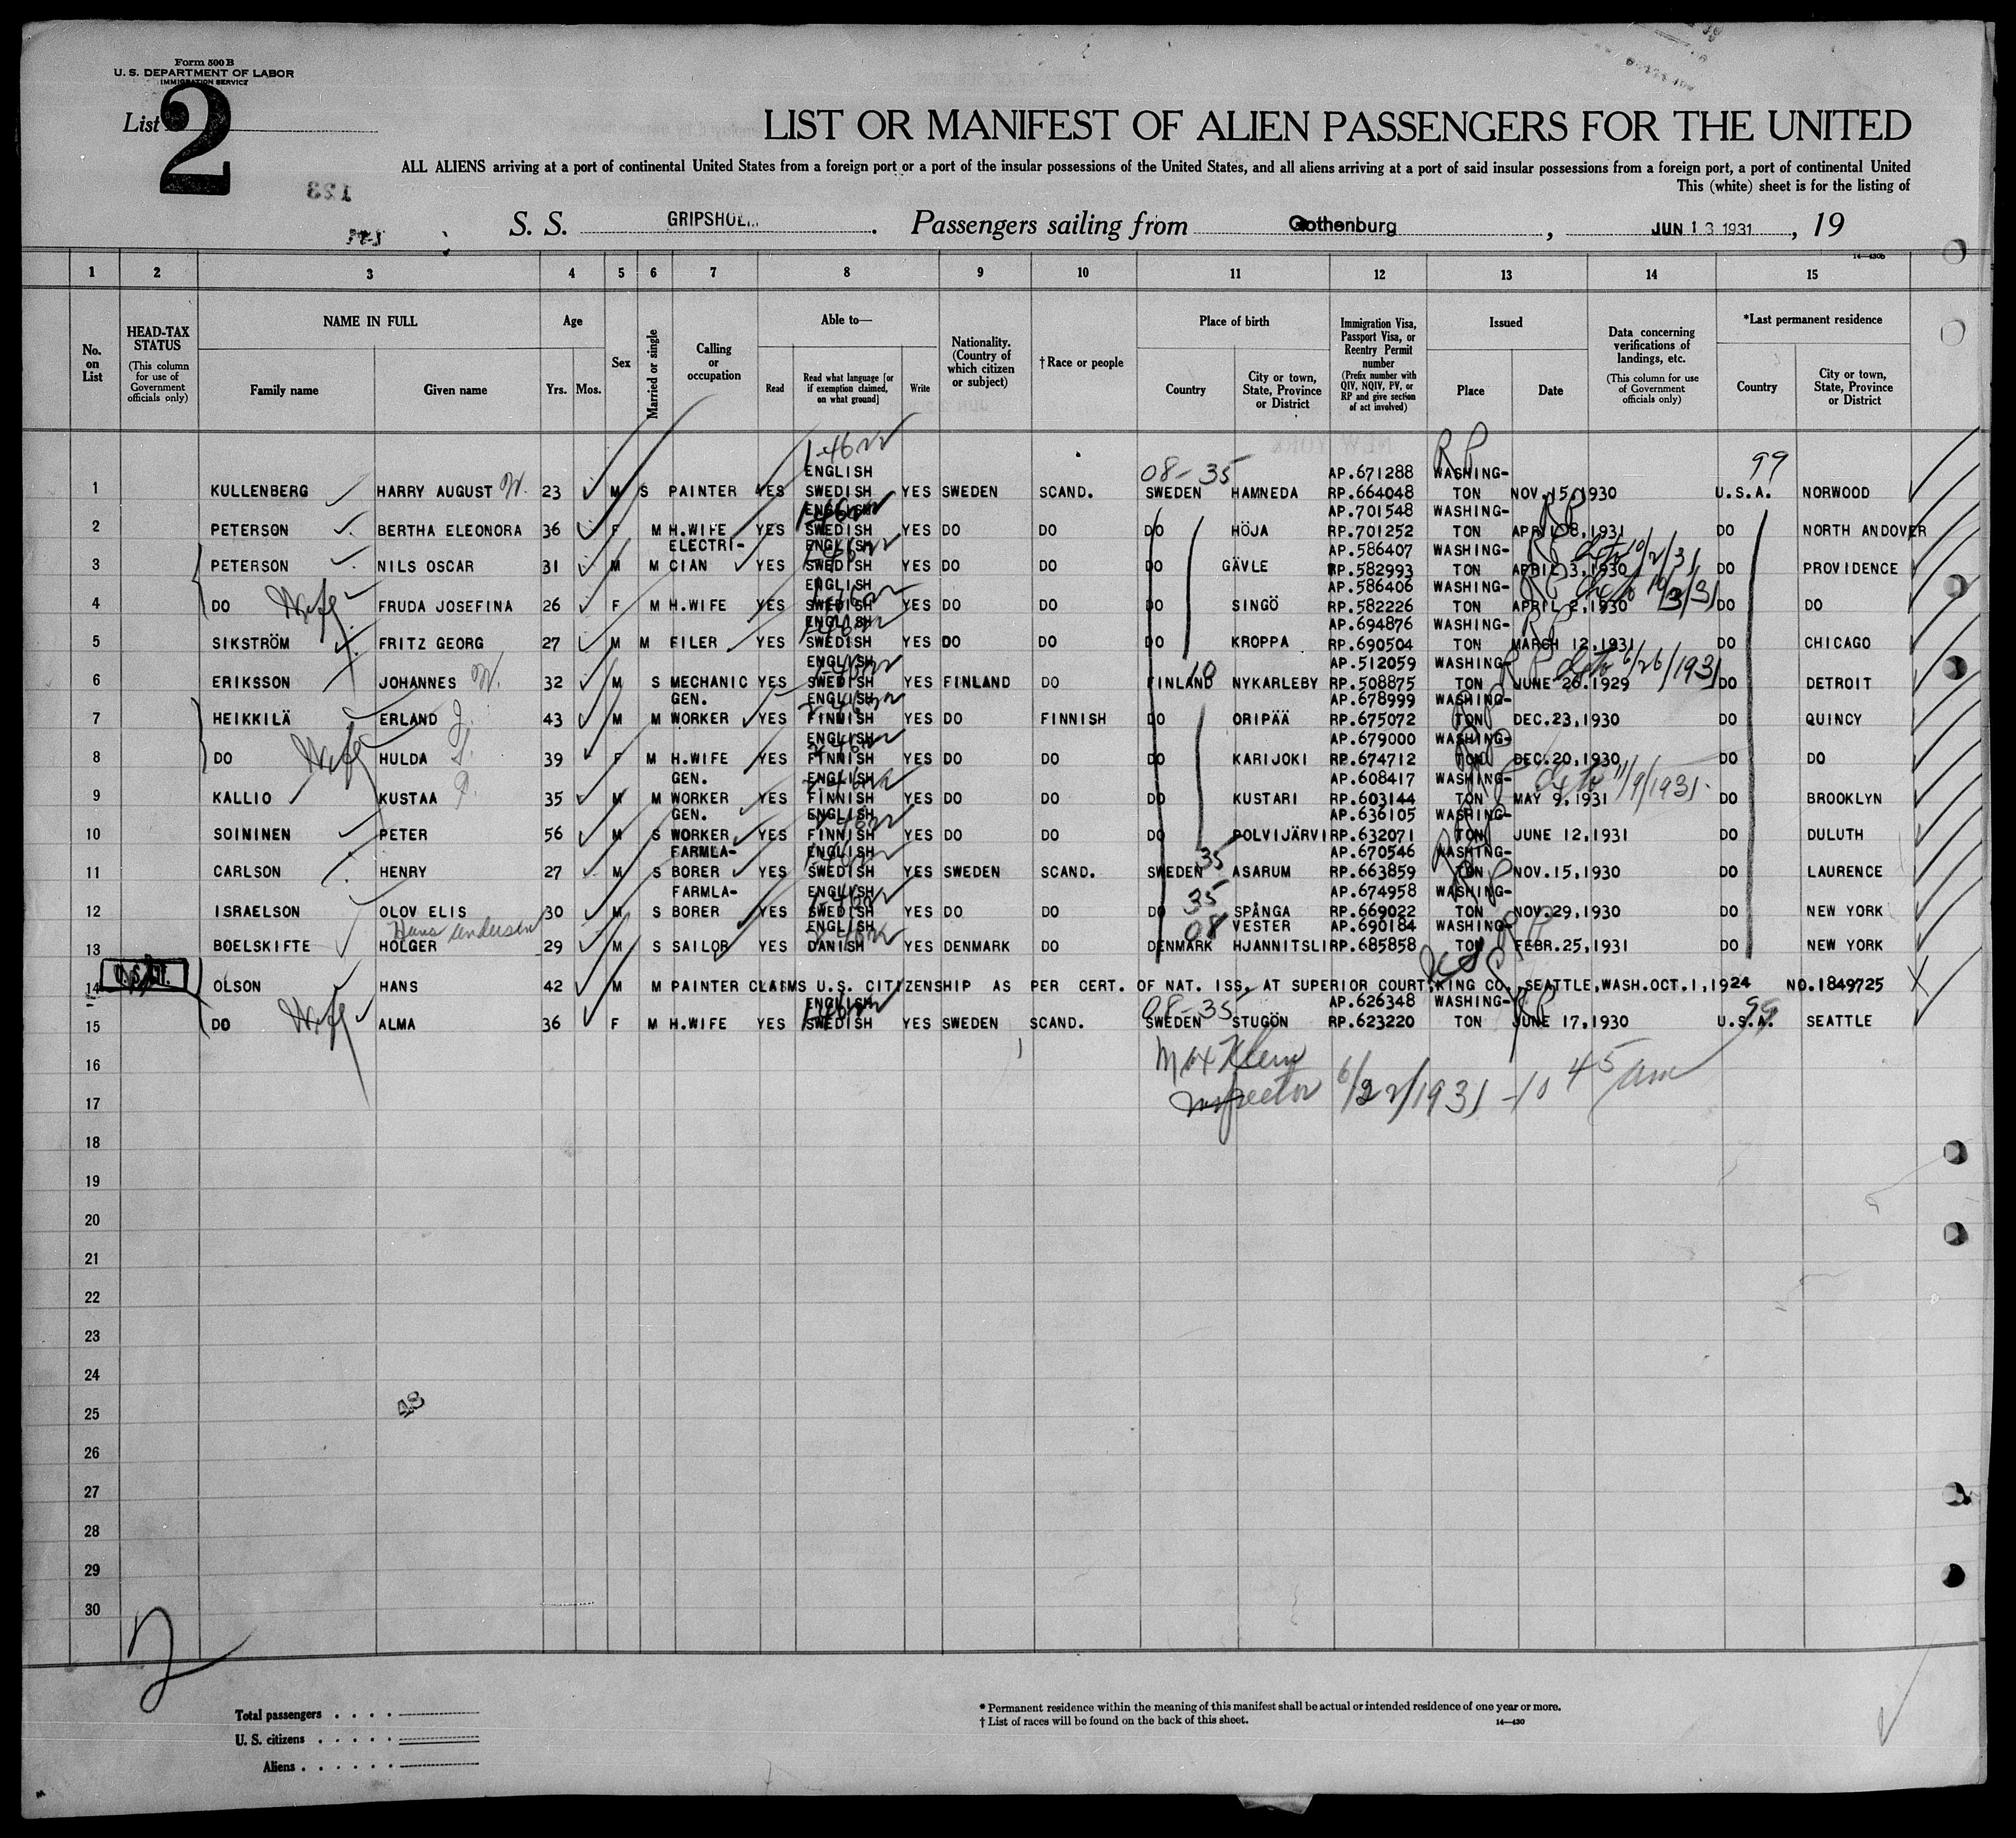 Form 500 B
U. S. DEPARTMENT OF LABOR
IMMIGRATION SERVICE
List 2
LIST OR MANIFEST OF ALIEN PASSENGERS FOR THE UNITED
ALL ALIENS arriving at a port of continental United States from a foreign port or a port of the insular possessions of the United States, and all aliens arriving at a port of said insular possessions from a foreign port, a port of continental United
This (white) sheet is for the listing of
123
S. S. GRIPSHOLM. Passengers sailing from Gothenburg, JUN 13 1931, 19
14—430b
1 2 3 4 5 6 7 8 9 10 11 12 13 14 15
No. on List
HEAD-TAX STATUS (This column for use of Government officials only)
NAME IN FULL
Family name Given name
Age
Yrs. Mos.
Sex
Married or single
Calling or occupation
Able to—
Read Read what language [or if exemption claimed, on what ground] Write
Nationality. (Country of which citizen or subject)
† Race or people
Place of birth
Country City or town, State, Province or District
Immigration Visa, Passport Visa, or Reentry Permit number (Prefix number with QIV, NQIV, PV, or RP and give section of act involved)
Issued
Place Date
Data concerning verifications of landings, etc. (This column for use of Government officials only)
*Last permanent residence
Country City or town, State, Province or District
1-4622 RP
ENGLISH 08-35 AP.671288 WASHING- 99
1 KULLENBERG HARRY AUGUST W. 23 M S PAINTER YES SWEDISH YES SWEDEN SCAND. SWEDEN HAMNEDA RP.664048 TON NOV.15,1930 U.S.A. NORWOOD
ENGLISH AP.701548 WASHING- RP
2 PETERSON BERTHA ELEONORA 36 F M H.WIFE YES SWEDISH YES DO DO DO HÖJA RP.701252 TON APRIL 8,1931 DO NORTH ANDOVER
ELECTRI- ENGLISH AP.586407 WASHING- RP 10/2/31
3 PETERSON NILS OSCAR 31 M M CIAN YES SWEDISH YES DO DO DO GÄVLE RP.582993 TON APRIL 3,1930 DO PROVIDENCE
ENGLISH AP.586406 WASHING- RP 10/3/31
4 DO Wife FRUDA JOSEFINA 26 F M H.WIFE YES SWEDISH YES DO DO DO SINGÖ RP.582226 TON APRIL 2,1930 DO DO
ENGLISH AP.694876 WASHING- RP
5 SIKSTRÖM FRITZ GEORG 27 M M FILER YES SWEDISH YES DO DO DO KROPPA RP.690504 TON MARCH 12,1931 DO CHICAGO
ENGLISH 10 AP.512059 WASHING- RP 6/26/1931
6 ERIKSSON JOHANNES W. 32 M S MECHANIC YES SWEDISH YES FINLAND DO FINLAND NYKARLEBY RP.508875 TON JUNE 26,1929 DO DETROIT
GEN. ENGLISH AP.678999 WASHING-
7 HEIKKILÄ ERLAND J. 43 M M WORKER YES FINNISH YES DO FINNISH DO ORIPÄÄ RP.675072 TON DEC.23,1930 DO QUINCY
ENGLISH AP.679000 WASHING-
8 DO Wife HULDA 39 F M H.WIFE YES FINNISH YES DO DO DO KARIJOKI RP.674712 TON DEC.20,1930 DO DO
GEN. ENGLISH AP.608417 WASHING- RP 11/9/1931
9 KALLIO KUSTAA 35 M M WORKER YES FINNISH YES DO DO DO KUSTARI RP.603144 TON MAY 9,1931 DO BROOKLYN
GEN. ENGLISH AP.636105 WASHING-
10 SOININEN PETER 56 M S WORKER YES FINNISH YES DO DO DO POLVIJÄRVI RP.632071 TON JUNE 12,1931 DO DULUTH
FARMLA- ENGLISH 35 AP.670546 WASHING-
11 CARLSON HENRY 27 M S BORER YES SWEDISH YES SWEDEN SCAND. SWEDEN ASARUM RP.663859 TON NOV.15,1930 DO LAURENCE
FARMLA- ENGLISH 35 AP.674958 WASHING-
12 ISRAELSON OLOV ELIS 30 M S BORER YES SWEDISH YES DO DO DO SPÅNGA RP.669022 TON NOV.29,1930 DO NEW YORK
Hans Andersen ENGLISH 08 VESTER AP.690184 WASHING- RP
13 BOELSKIFTE HOLGER 29 M S SAILOR YES DANISH YES DENMARK DO DENMARK HJANNITSLI RP.685858 TON FEBR.25,1931 DO NEW YORK
14 OLSON HANS 42 M M PAINTER CLAIMS U.S. CITIZENSHIP AS PER CERT. OF NAT. ISS. AT SUPERIOR COURT,KING CO.,SEATTLE,WASH.OCT.1,1924 NO.1849725 X
ENGLISH 08-35 AP.626348 WASHING- RP 99
15 DO Wife ALMA 36 F M H.WIFE YES SWEDISH YES SWEDEN SCAND. SWEDEN STUGÖN RP.623220 TON JUNE 17,1930 U.S.A. SEATTLE
16 Max Klein
17 Inspector 6/22/1931 -10 45 am
18
19
20
21
22
23
24
25
48
26
27
28
29
30
2
Total passengers
U. S. citizens
Aliens
* Permanent residence within the meaning of this manifest shall be actual or intended residence of one year or more.
† List of races will be found on the back of this sheet. 14—430